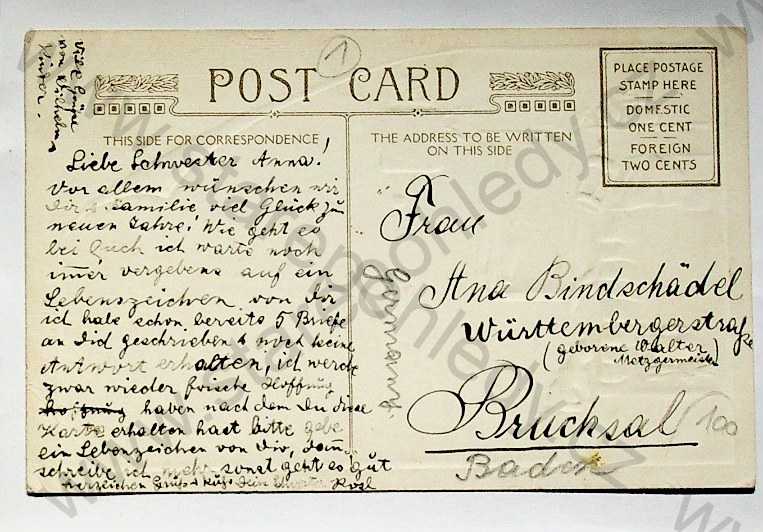 Viele Grüße
von Wilhelms
Kinder.
1
POST CARD
THIS SIDE FOR CORRESPONDENCE
THE ADDRESS TO BE WRITTEN
ON THIS SIDE
PLACE POSTAGE
STAMP HERE
DOMESTIC
ONE CENT
FOREIGN
TWO CENTS
Liebe Schwester Anna!
Vor allem wünschen wir
Dir & Familie viel Glück zum
neuen Jahre! Wie geht es
bei Euch ich warte noch
immer vergebens auf ein
Lebenszeichen von Dir
ich habe schon bereits 5 Briefe
an Dich geschrieben & noch keine
Antwort erhalten, ich werde
zwar wieder frische Hoffnung
haben nach dem Du diese
Karte erhalten hast bitte gebe
ein Lebenszeichen von Dir, dann
schreibe ich mehr sonst geht es gut
herzlichen Gruß & Kuß Dein Rosl
Frau
Ana Bindschädel
Württembergerstraße
(geborene Walter)
Metzgermeister
Bruchsal
Baden
Germany
100
www.starepohledy.cz